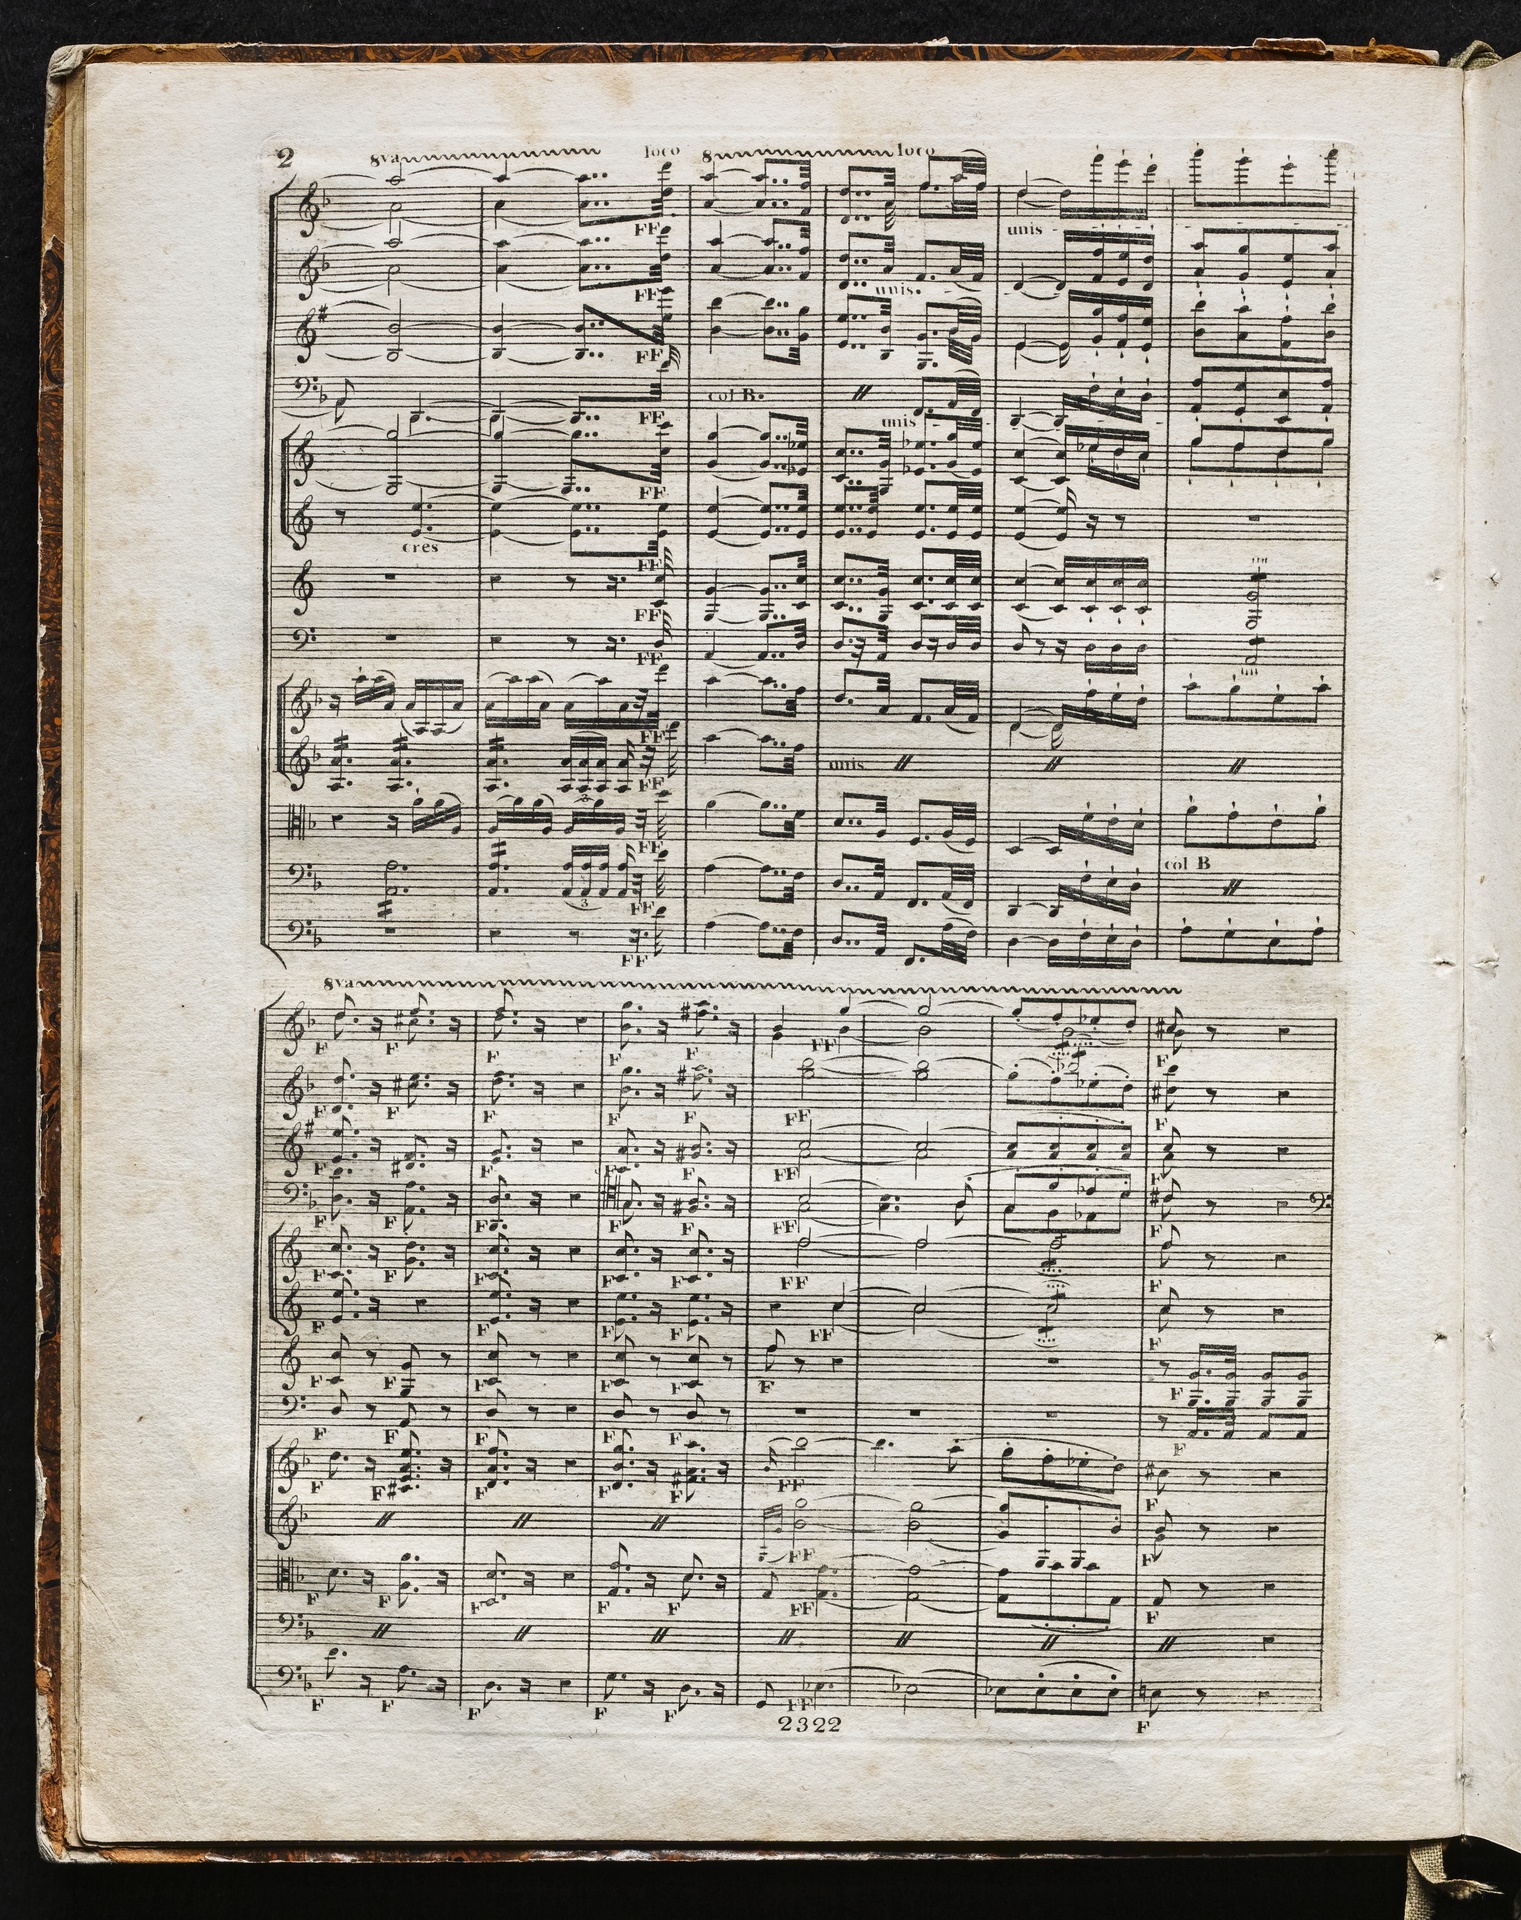 2
8va loco 8 loco
FF
unis
FF
unis.
FF
col B.
FF
unis
FF
cres
FF
FF
FF
FF
unis
FF
FF
col B
3
FF
FF
8va
F F F F F FF F
F F F F F FF F
F F F F F FF F
F F F F F FF F
F F F F F FF F
F F F F FF F
F F F F F F F
F F F F F F
F F F F F FF F
FF F
F F F F F FF F
F F F F F FF F
2322